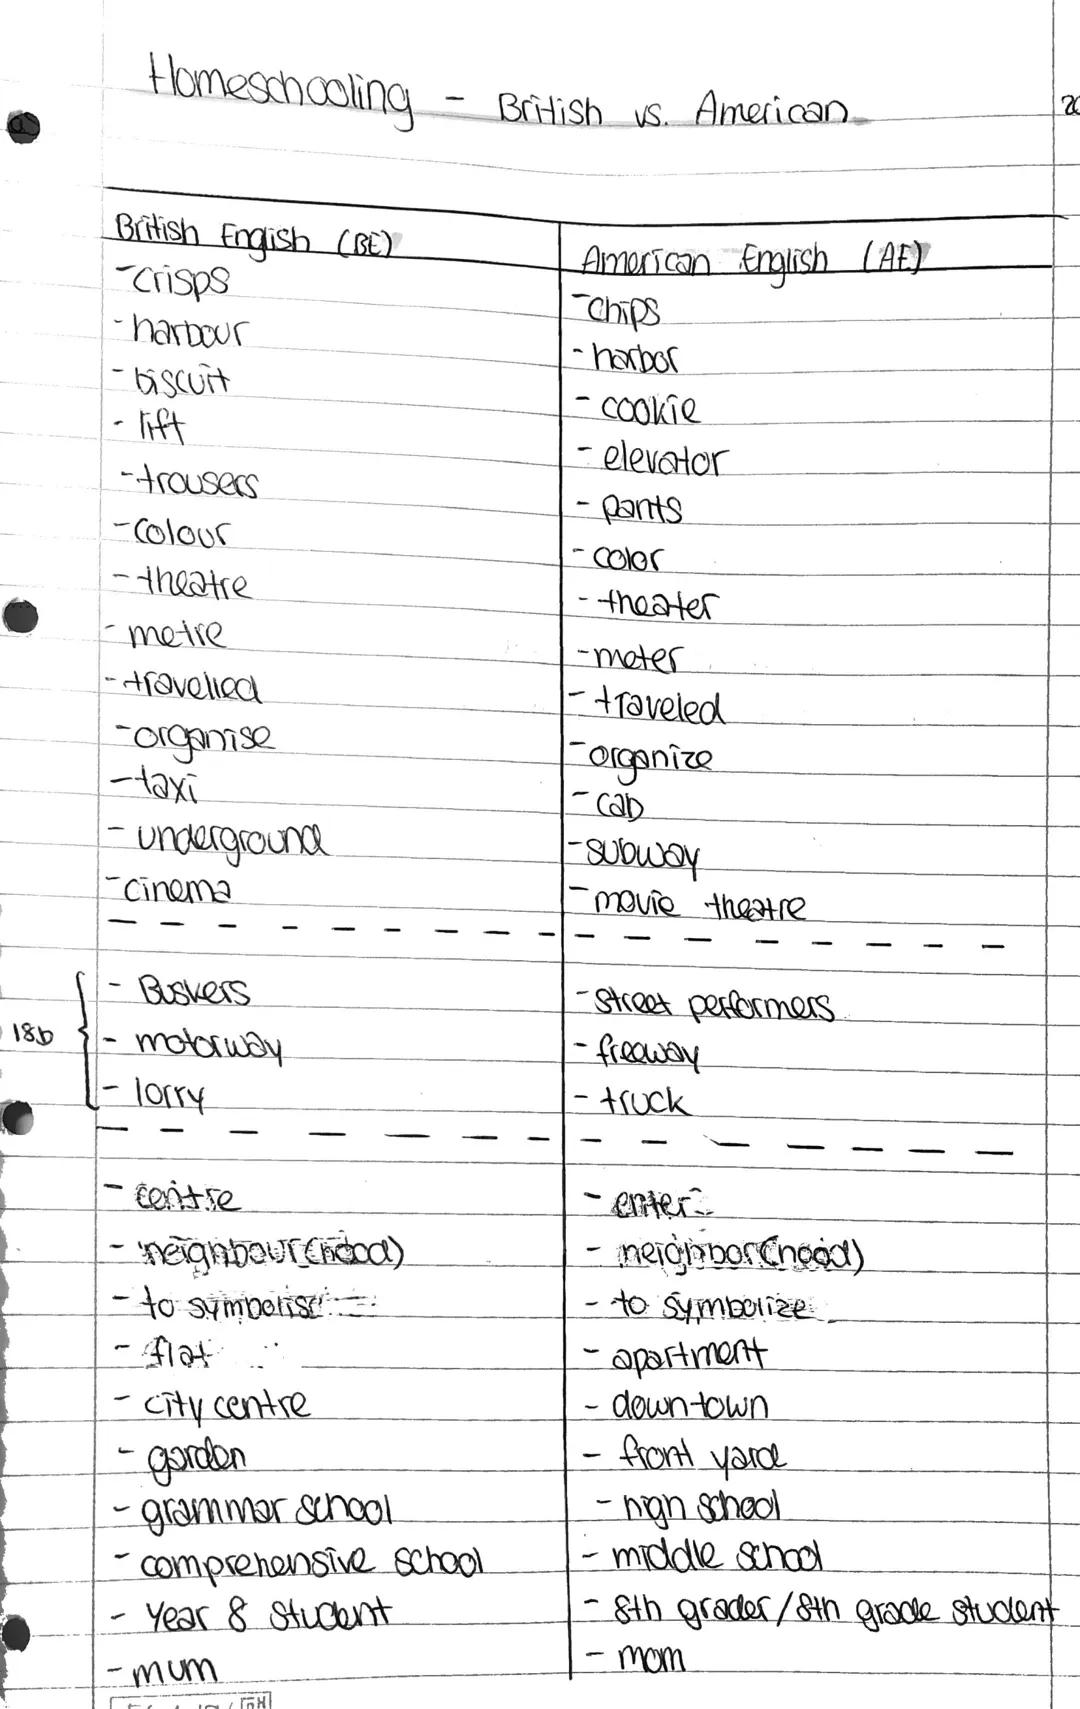 Homeschooling - British vs. American
British English (BE)
American English (AE)
- crisps
- chips
- harbour
- harbor
- biscuit
- cookie
- lift
- elevator
- trousers
- pants
- colour
- color
- theatre
- theater
- metre
- meter
- travelled
- traveled
- organise
- organize
- taxi
- cab
- underground
- subway
- cinema
- movie theatre
18b
- Buskers
- street performers
- motorway
- freeway
- lorry
- truck
- centre
- enter
- neighbour(hood)
- neighbor(hood)
- to symbolise
- to symbolize
- flat
- apartment
- city centre
- downtown
- garden
- front yard
- grammar school
- high school
- comprehensive school
- middle school
- Year 8 student
- 8th grader/8th grade student
- mum
- mom